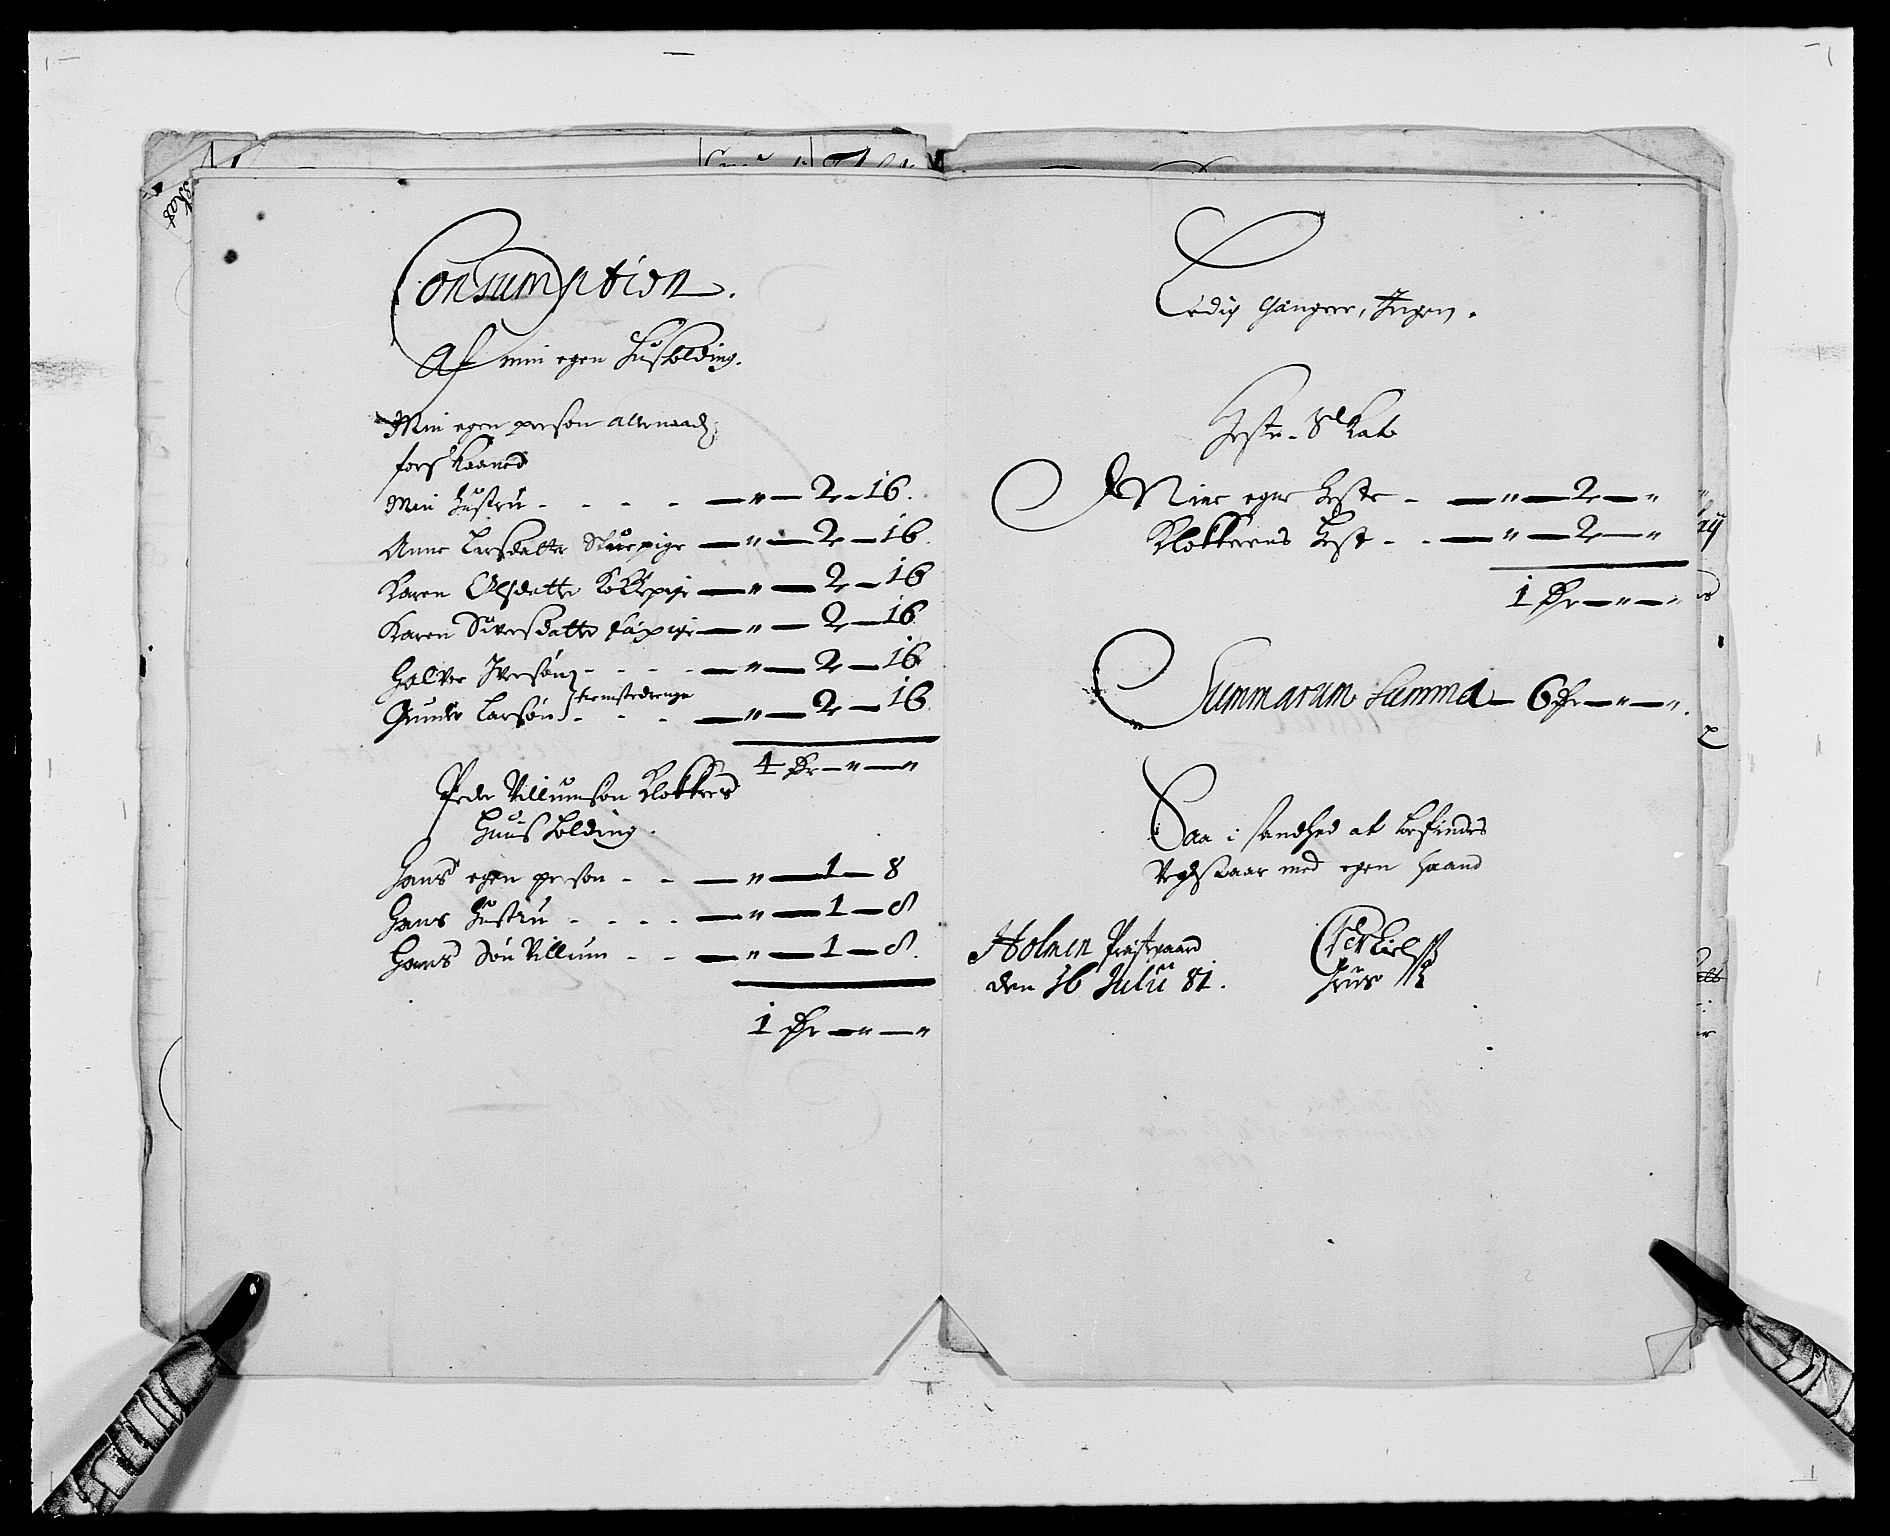 Consumption.
Af min egen Husholding.
Min egen person allernaadz:
forskaaned
Min Hustru - - - - — " — 2 — 16.
Anne Larsdatter Stuepige — " — 2 — 16.
Karen Olsdatter Kokkepige — " — 2 — 16
Karen Siversdatter fæpige — " — 2 — 16
Halvor Iversøn - - - - — " — 2 — 16
Gunder Larsøn } tienistedrenge - - - — " — 2 — 16.
4 Dr — " — "
Peder Villumsøn Klokkers
Huusholding.
Hans egen person - - — " — 1 — 8
Hans Hustru - - - - — " — 1 — 8
Hans Søn Villum - - — " — 1 — 8.
1 Dr — " — "
Ledig Gænger, Ingen.
Heste-Skat
Mine egne Heste - — " — 2 — "
Klokkerens Hest - - — " — 2 — "
1 Dr — " — "
Summarum Summa — 6 Dr — " — ".
Saa i sandhed at befindes
Vedstaar med egen Haand
Holmen Præstegaard
den 16 Julii 81.